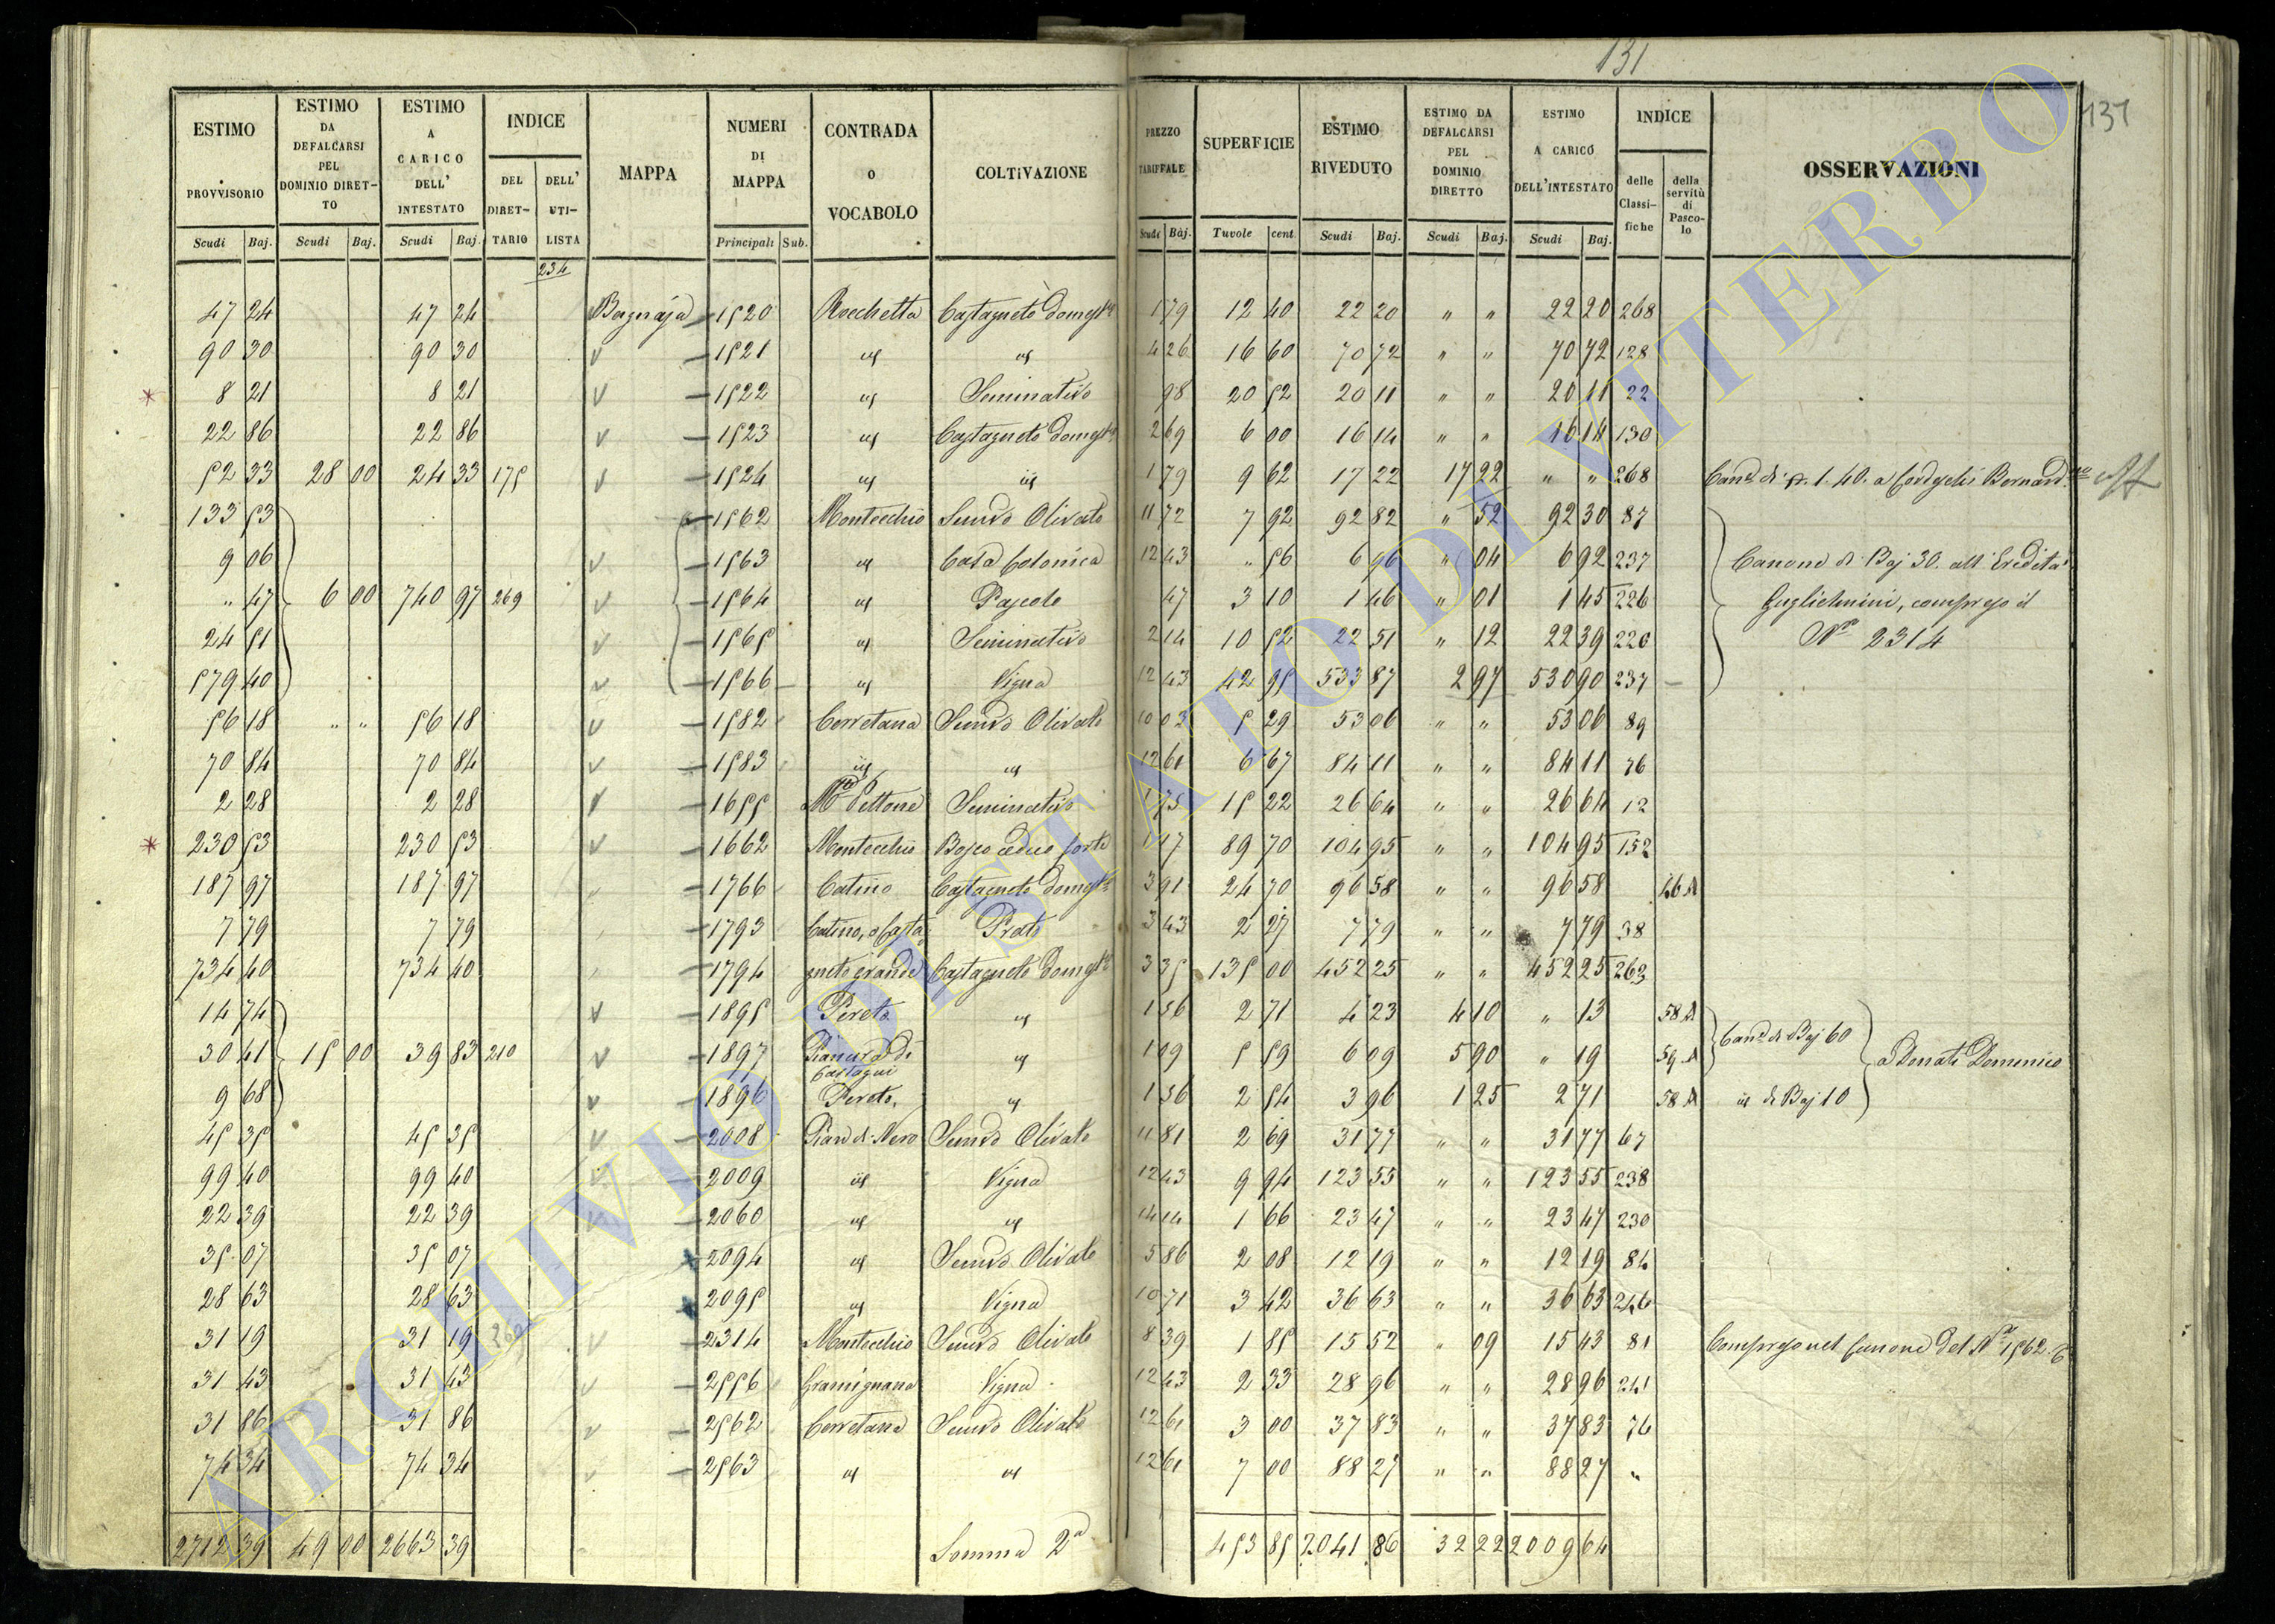 131
131
ESTIMO PROVVISORIO | ESTIMO DA DEFALCARSI PEL DOMINIO DIRETTO | ESTIMO A CARICO DELL' INTESTATO | INDICE DEL DIRETTARIO | DELL' UTILISTA | MAPPA | NUMERI DI MAPPA | CONTRADA O VOCABOLO | COLTIVAZIONE | PREZZO TARIFFALE | SUPERFICIE | ESTIMO RIVEDUTO | ESTIMO DA DEFALCARSI PEL DOMINIO DIRETTO | ESTIMO A CARICO DELL'INTESTATO | INDICE delle Classifiche | della servitù di Pascolo | OSSERVAZIONI
Scudi Baj. | Scudi Baj. | Scudi Baj. | Principali Sub. | Scudi Baj. | Tavole cent. | Scudi Baj. | Scudi Baj. | Scudi Baj.
234
47 24 | 47 24 | Bagnaja | 1520 | Rocchetta | Castagneto domest | 1 79 | 12 40 | 22 20 | " " | 22 20 | 268
90 30 | 90 30 | 1521 | id | id | 4 26 | 16 60 | 70 72 | " " | 70 72 | 128
* 8 21 | 8 21 | 1522 | id | Seminativo | 98 | 20 52 | 20 11 | " " | 20 11 | 22
22 86 | 22 86 | 1523 | id | Castagneto domest | 2 69 | 6 00 | 16 14 | " " | 16 14 | 130
52 33 | 28 00 | 24 33 | 175 | 1524 | id | id | 1 79 | 9 62 | 17 22 | 17 22 | " " | 268 | Can. di 1.40. a Bernard
133 53 | 1562 | Montecchio | Semvo Olivato | 11 72 | 7 92 | 92 82 | " 52 | 92 30 | 87
9 06 | 1563 | id | Casa Colonica | 12 43 | " 56 | 6 96 | " 04 | 6 92 | 237 | Canone di Baj 30. all' Eredità
" 47 | 6 00 | 740 97 | 269 | 1564 | id | Pascolo | 47 | 3 10 | 1 46 | " 01 | 1 45 | 226 | Guglielmini, compreso il
24 51 | 1565 | id | Seminativo | 2 14 | 10 52 | 22 51 | " 12 | 22 39 | 220 | No 2314
579 40 | 1566 | id | Vigna | 12 43 | 42 95 | 533 87 | 2 97 | 530 90 | 237
56 18 | " " | 56 18 | 1582 | Cerretana | Semvo Olivato | 10 03 | 5 29 | 53 06 | " " | 53 06 | 89
70 84 | 70 84 | 1583 | id | id | 12 61 | 6 67 | 84 11 | " " | 84 11 | 76
2 28 | 2 28 | 1655 | Seminativo | 1 75 | 15 22 | 26 64 | " " | 26 64 | 12
* 230 53 | 230 53 | 1662 | Montecchio | Bosco ceduo forte | 1 17 | 89 70 | 104 95 | " " | 104 95 | 152
187 97 | 187 97 | 1766 | Catino | Castagneto domest | 3 91 | 24 70 | 96 58 | " " | 96 58 | 46 A
7 79 | 7 79 | 1793 | Catino, o Casta | Prato | 3 43 | 2 27 | 7 79 | " " | 7 79 | 38
734 40 | 734 40 | 1794 | gneto grande | Castagneto domest | 3 35 | 135 00 | 452 25 | " " | 452 25 | 263
14 74 | 1895 | Pereto | id | 1 56 | 2 71 | 4 23 | 4 10 | " 13 | 58 A | Can. di Baj 60
30 41 | 15 00 | 39 83 | 210 | 1897 | Pianura di Castagni | id | 1 09 | 5 59 | 6 09 | 5 90 | " 19 | 59 A | a Donati Domenico
9 68 | 1896 | Pereto | id | 1 56 | 2 54 | 3 96 | 1 25 | 2 71 | 58 A | id di Baj 10
45 35 | 45 35 | 2008 | Pian di Nero | Semvo Olivato | 11 81 | 2 69 | 31 77 | " " | 31 77 | 67
99 40 | 99 40 | 2009 | id | Vigna | 12 43 | 9 94 | 123 55 | " " | 123 55 | 238
22 39 | 22 39 | 2060 | id | id | 14 14 | 1 66 | 23 47 | " " | 23 47 | 230
35 07 | 35 07 | 2094 | id | Semvo Olivato | 5 86 | 2 08 | 12 19 | " " | 12 19 | 84
28 63 | 28 63 | 2095 | id | Vigna | 10 71 | 3 42 | 36 63 | " " | 36 63 | 246
31 19 | 31 19 | 2314 | Montecchio | Semvo Olivato | 8 39 | 1 85 | 15 52 | " 09 | 15 43 | 81 | Compreso nel Canone del No 1562
31 43 | 31 43 | 2556 | Gramignana | Vigna | 12 43 | 2 33 | 28 96 | " " | 28 96 | 241
31 86 | 31 86 | 2562 | Cerretana | Semvo Olivato | 12 61 | 3 00 | 37 83 | " " | 37 83 | 76
74 34 | 74 34 | 2563 | id | id | 12 61 | 7 00 | 88 27 | " " | 88 27 | "
2712 39 | 49 00 | 2663 39 | Somma 2a | 453 85 | 2041 86 | 32 22 | 2009 64
ARCHIVIO DI STATO DI VITERBO